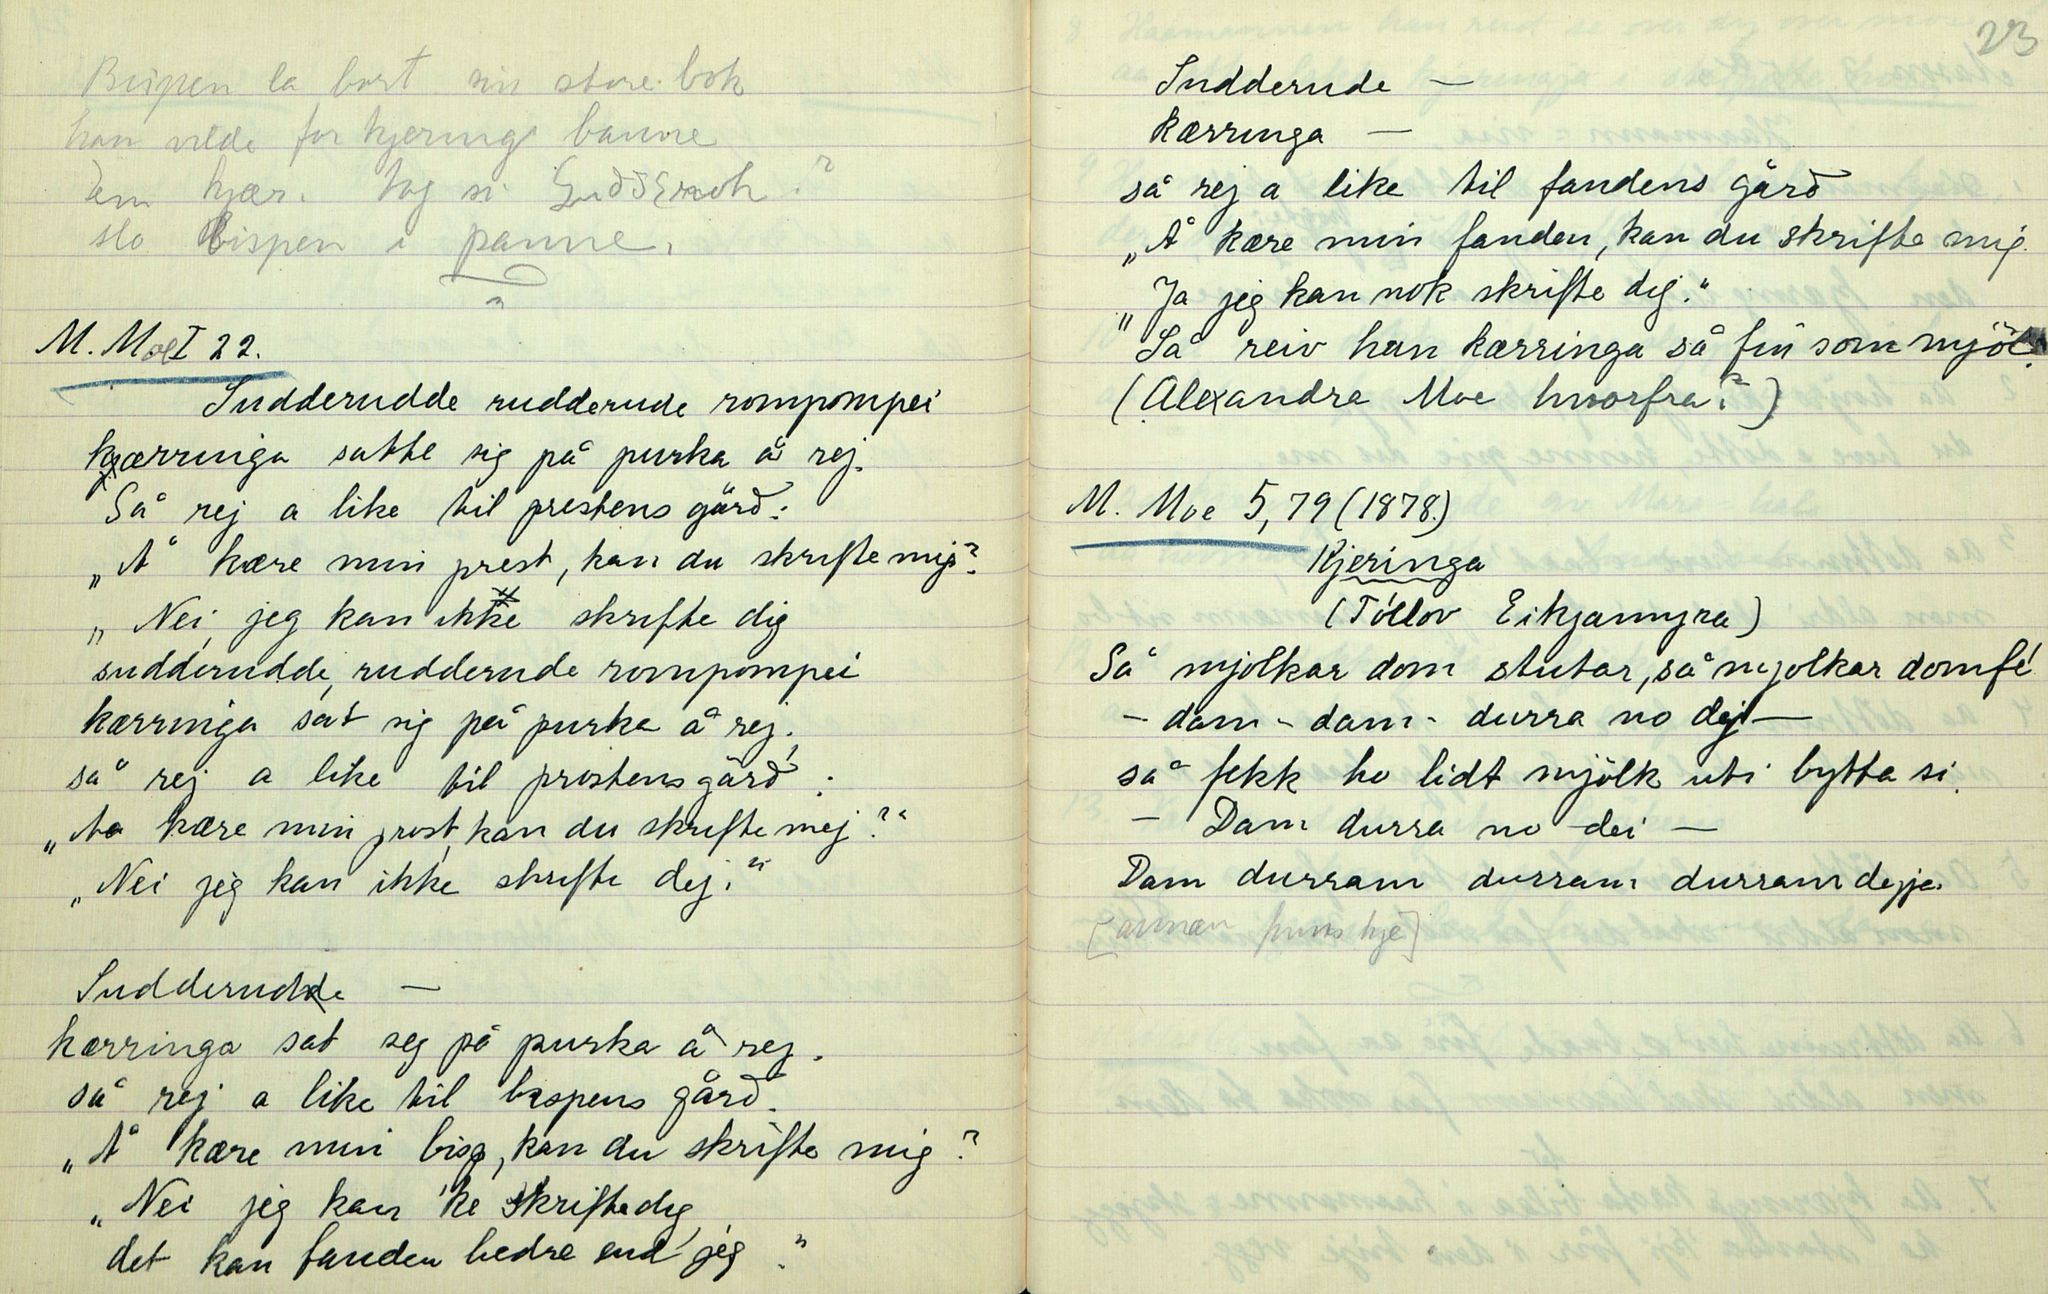 Bispen la bort sin store bok
han vilde for kjeringi banne
Den kjær. tog si
slo bispen i panne.
M. Moe I 22.
Sudderudde rudderude rompompei
kjærringa satte sig på purka å rej.
Så rej a like til prestens gård:
„Å kære min prest, kan du skrifte mig?
„Nei, jeg kan ikke skrifte dig
sudderudde, rudderude rompompei
kærringa sat sig på purka å rej,
så rej a like til prostens gård:
„Aa kære min prost, kan du skrifte mej?"
„Nei jeg kan ikke skrifte dej."
Sudderudde —
kærringa sat seg på purka å rej.
så rej a like til bispens gård.
„Å kære min bisp, kan du skrifte mig?
„Nei jeg kan 'ke skrifte dig
det kan fanden bedre end jeg."
23
Sudderude —
kærringa —
så rej a like til fandens gård
„Å kære min fanden, kan du skrifte mig.
„Ja jeg kan nok skrifte dig."
Så reiv han kærringa så fin som mjöl.
(Alexandra Moe hvorfra?)
M. Moe 5, 79 (1878.)
Kjeringa
(Tóllov Eikjamyra)
Så mjolkar dom stutar, så mjolkar dom fé
— dam - dam - durra no dej —
så fekk ho lidt mjölk uti bytta si.
— Dam durra no dei —
Dam durram durram durram dejja.
[annan hjé]